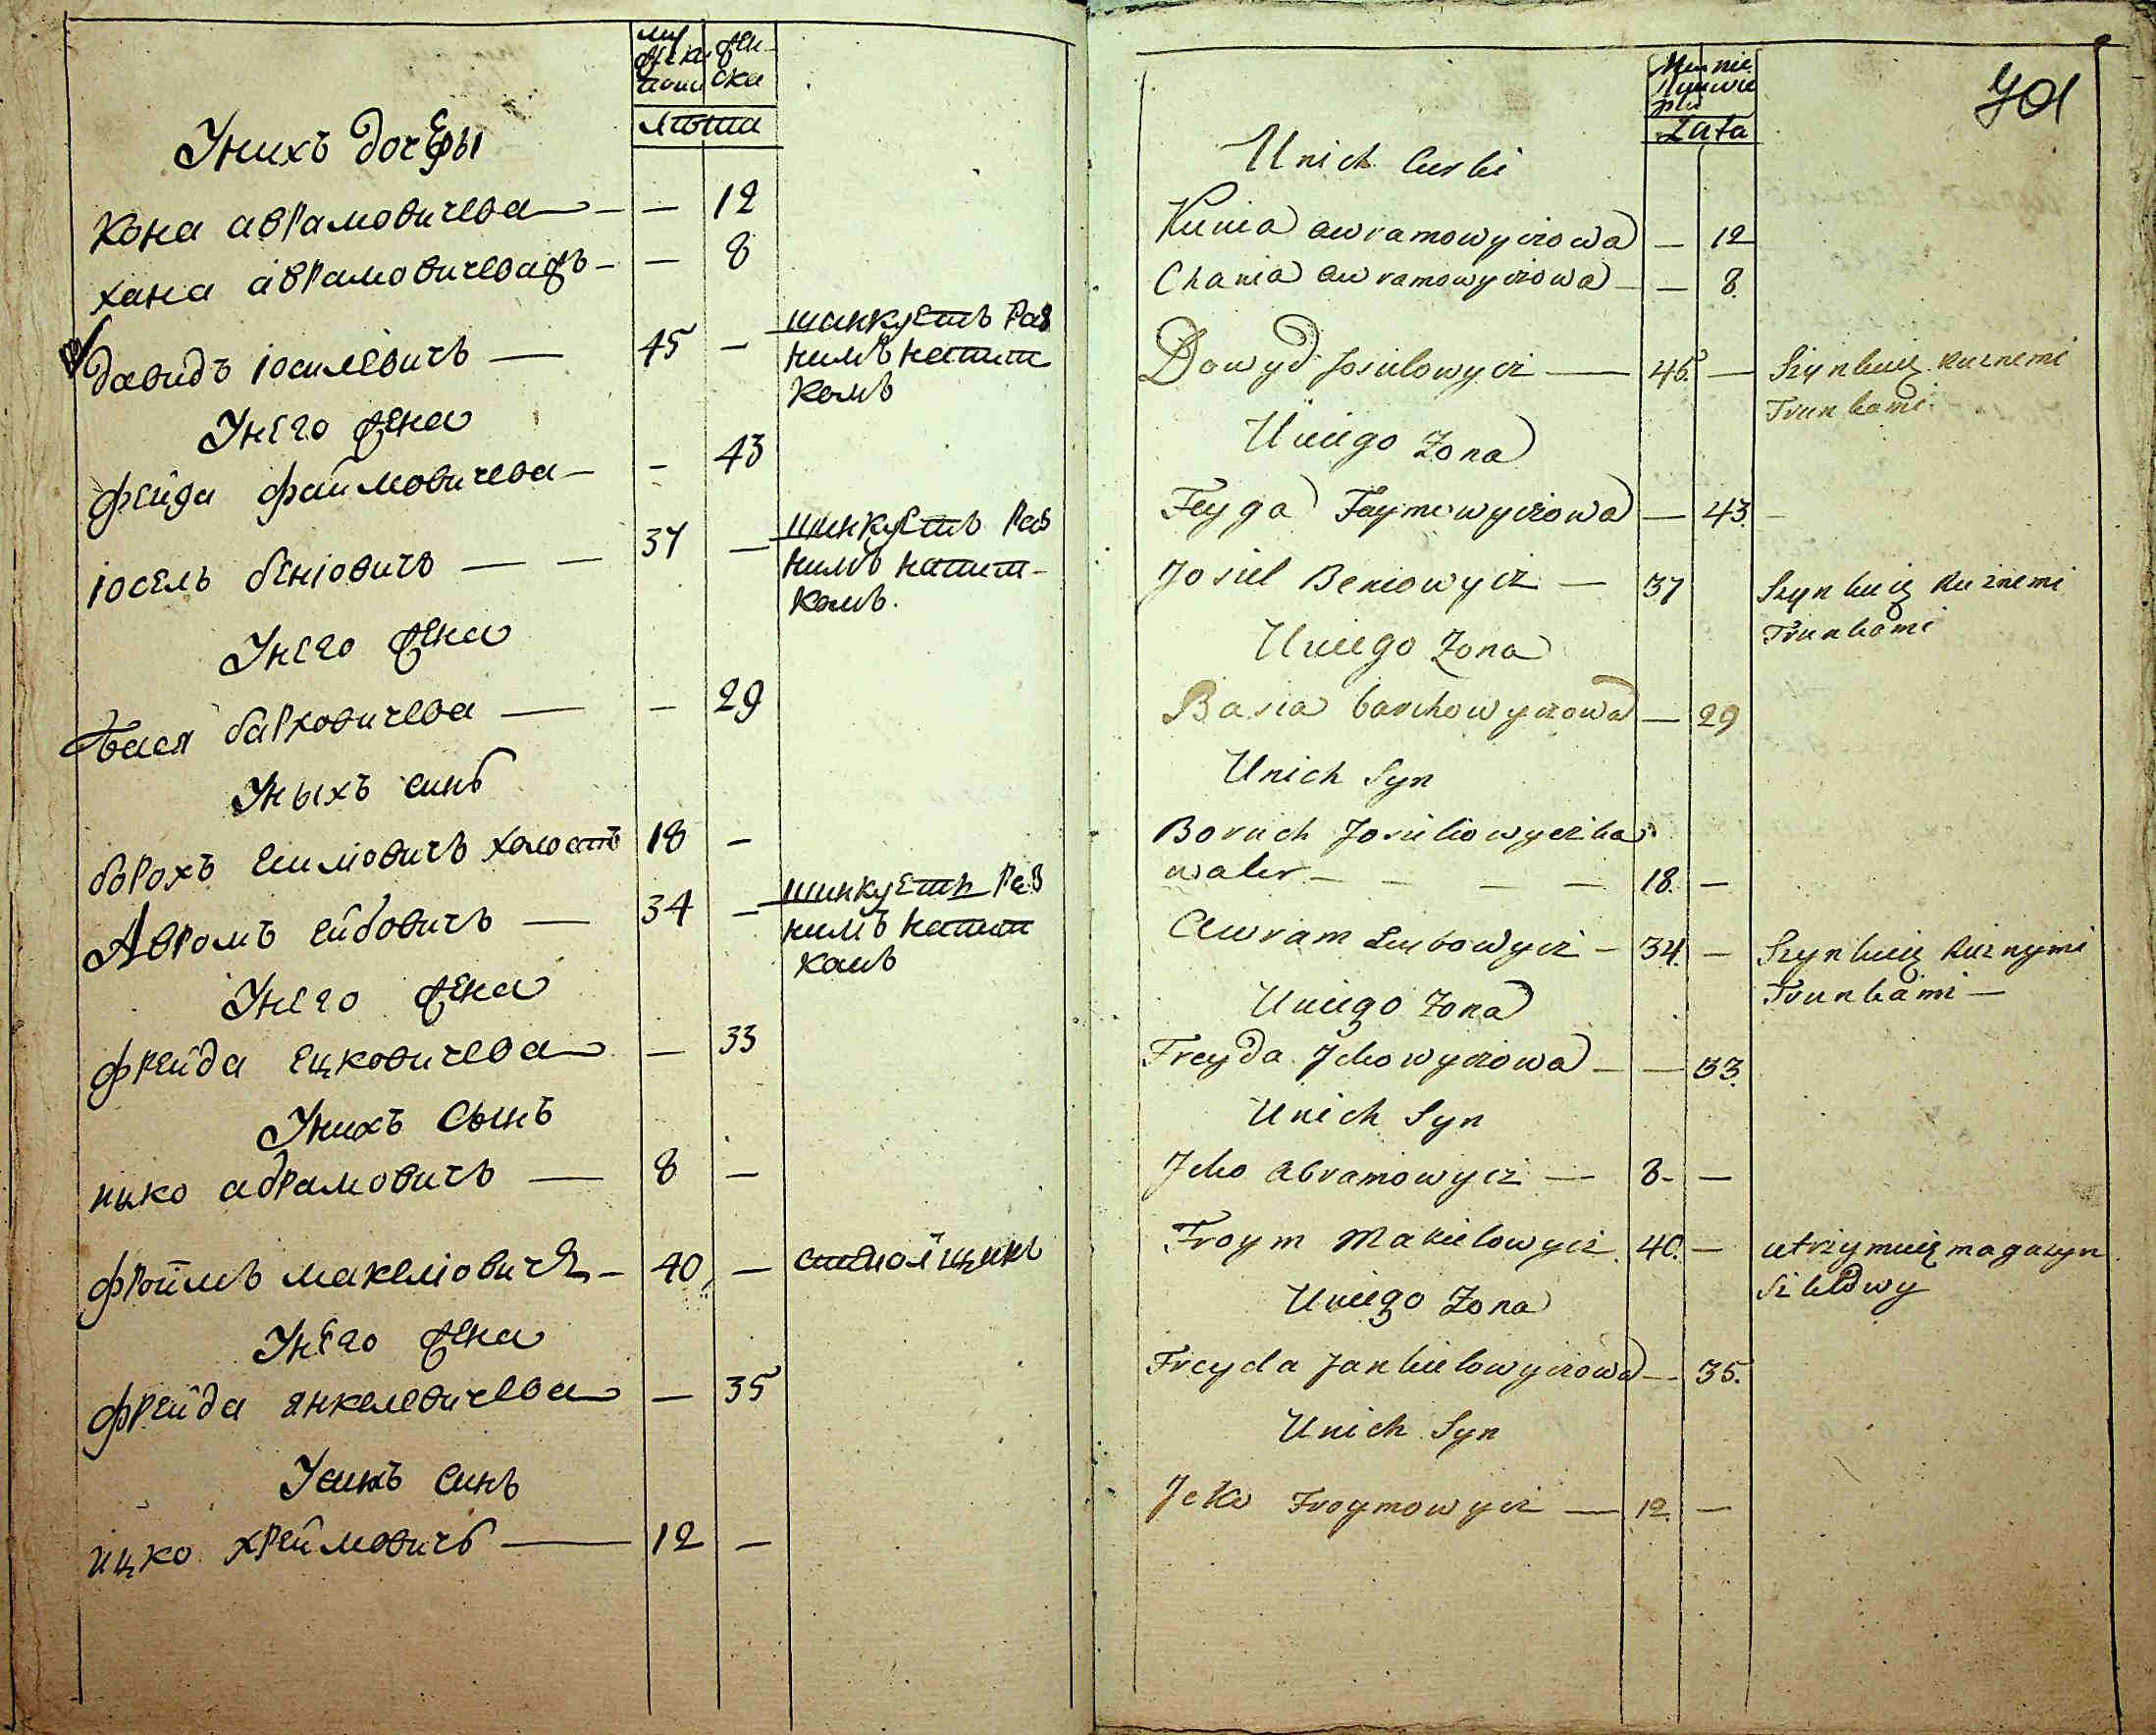 Муж
ска
Жен
ска
Лѣта
Унихъ дочеры
кона аврамовичева — — 12
хана аврамовичева — — 8
давидъ іосилевичъ — 45 — шинкуетъ раз
нимъ напит
комъ
Унего жена
фейга файмовичева — — 43
іосель беніовичъ — — 37 — шинкуетъ раз
нимъ напит-
комъ.
Унего жена
Бася барховичева — — 29
Уныхъ синъ
борохъ холостъ 18 —
Авромъ лейбовичъ — 34 — шинкуетъ раз
нимъ напит
комъ
Унего жена
фрейда ецковичева — 33
Унихъ Сынъ
ицко абрамовичъ — 8 —
фроймъ макеліовичъ — 40, —
Унего жена
фрейда янкелевичева — 35
Унихъ синъ
ицко хреймовичъ — 12 —
701
Lata
Unich Curki
Kunia awramowyczowa — 12
Chania awramowyczowa — — 8.
Dowyd Josielowycz — 45. — Szynkuię ruznemi
Trunkami.
Uniego Zona
Feyga Faymowyczowa — 43. —
Josiel Beniowycz — 37 Szynkuię Ruznemi
Trunkami
Uniego Zona
Basia barchowyczowa — 29
Unich Syn
Boruch Josieliowycz ka
waler — — — — 18. —
Awram Leybowycz — 34. — Szynkuię Ruznymi
Trunkami —
Uniego Zona
Freyda Jckowyczowa — — 33.
Unich Syn
Jcko Abramowycz — 8. —
Froym Makielowycz 40. — utrzymuię magazyn
Uniego Zona
Freyda Jankielowyczowa — 35.
Unich Syn
Jcko Froymowycz — 12. —